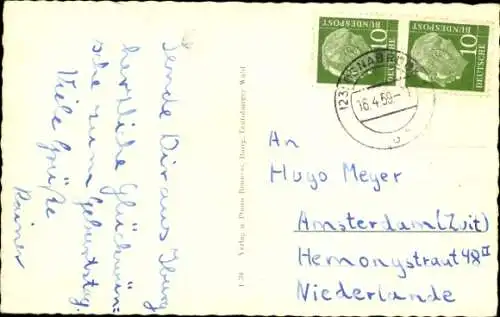 Sende Dir aus Iburg
herzliche Glückwün=
sche zum Geburtstag.
Viele Grüße
Rainer
Verlag u. Photo
Teutoburger Wald
10
DEUTSCHE
BUNDESPOST
10
DEUTSCHE
BUNDESPOST
(23) OSNABRÜCK
16.4.59
An
Hugo Meyer
Amsterdam (Zuit)
Hemonystraat 48 II
Niederlande